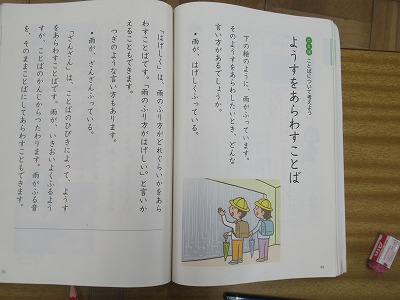 ことばについて考えよう
ようすをあらわすことば
下の絵のように、雨がふっています。
そのようすをあらわしたいとき、どんな
言い方があるでしょうか。
・雨が、はげしくふっている。
「はげしく」は、雨のふり方がどれぐらいかをあら
わすことばです。「雨のふり方がはげしい。」と言いか
えることもできます。
つぎのような言い方もあります。
・雨が、ざんざんふっている。
「ざんざん」は、ことばのひびきによって、ようす
をあらわすことばです。雨が、いきおいよくふるよう
すが、ことばのかんじからつたわります。雨がふる音
を、そのままことばにしてあらわすこともできます。